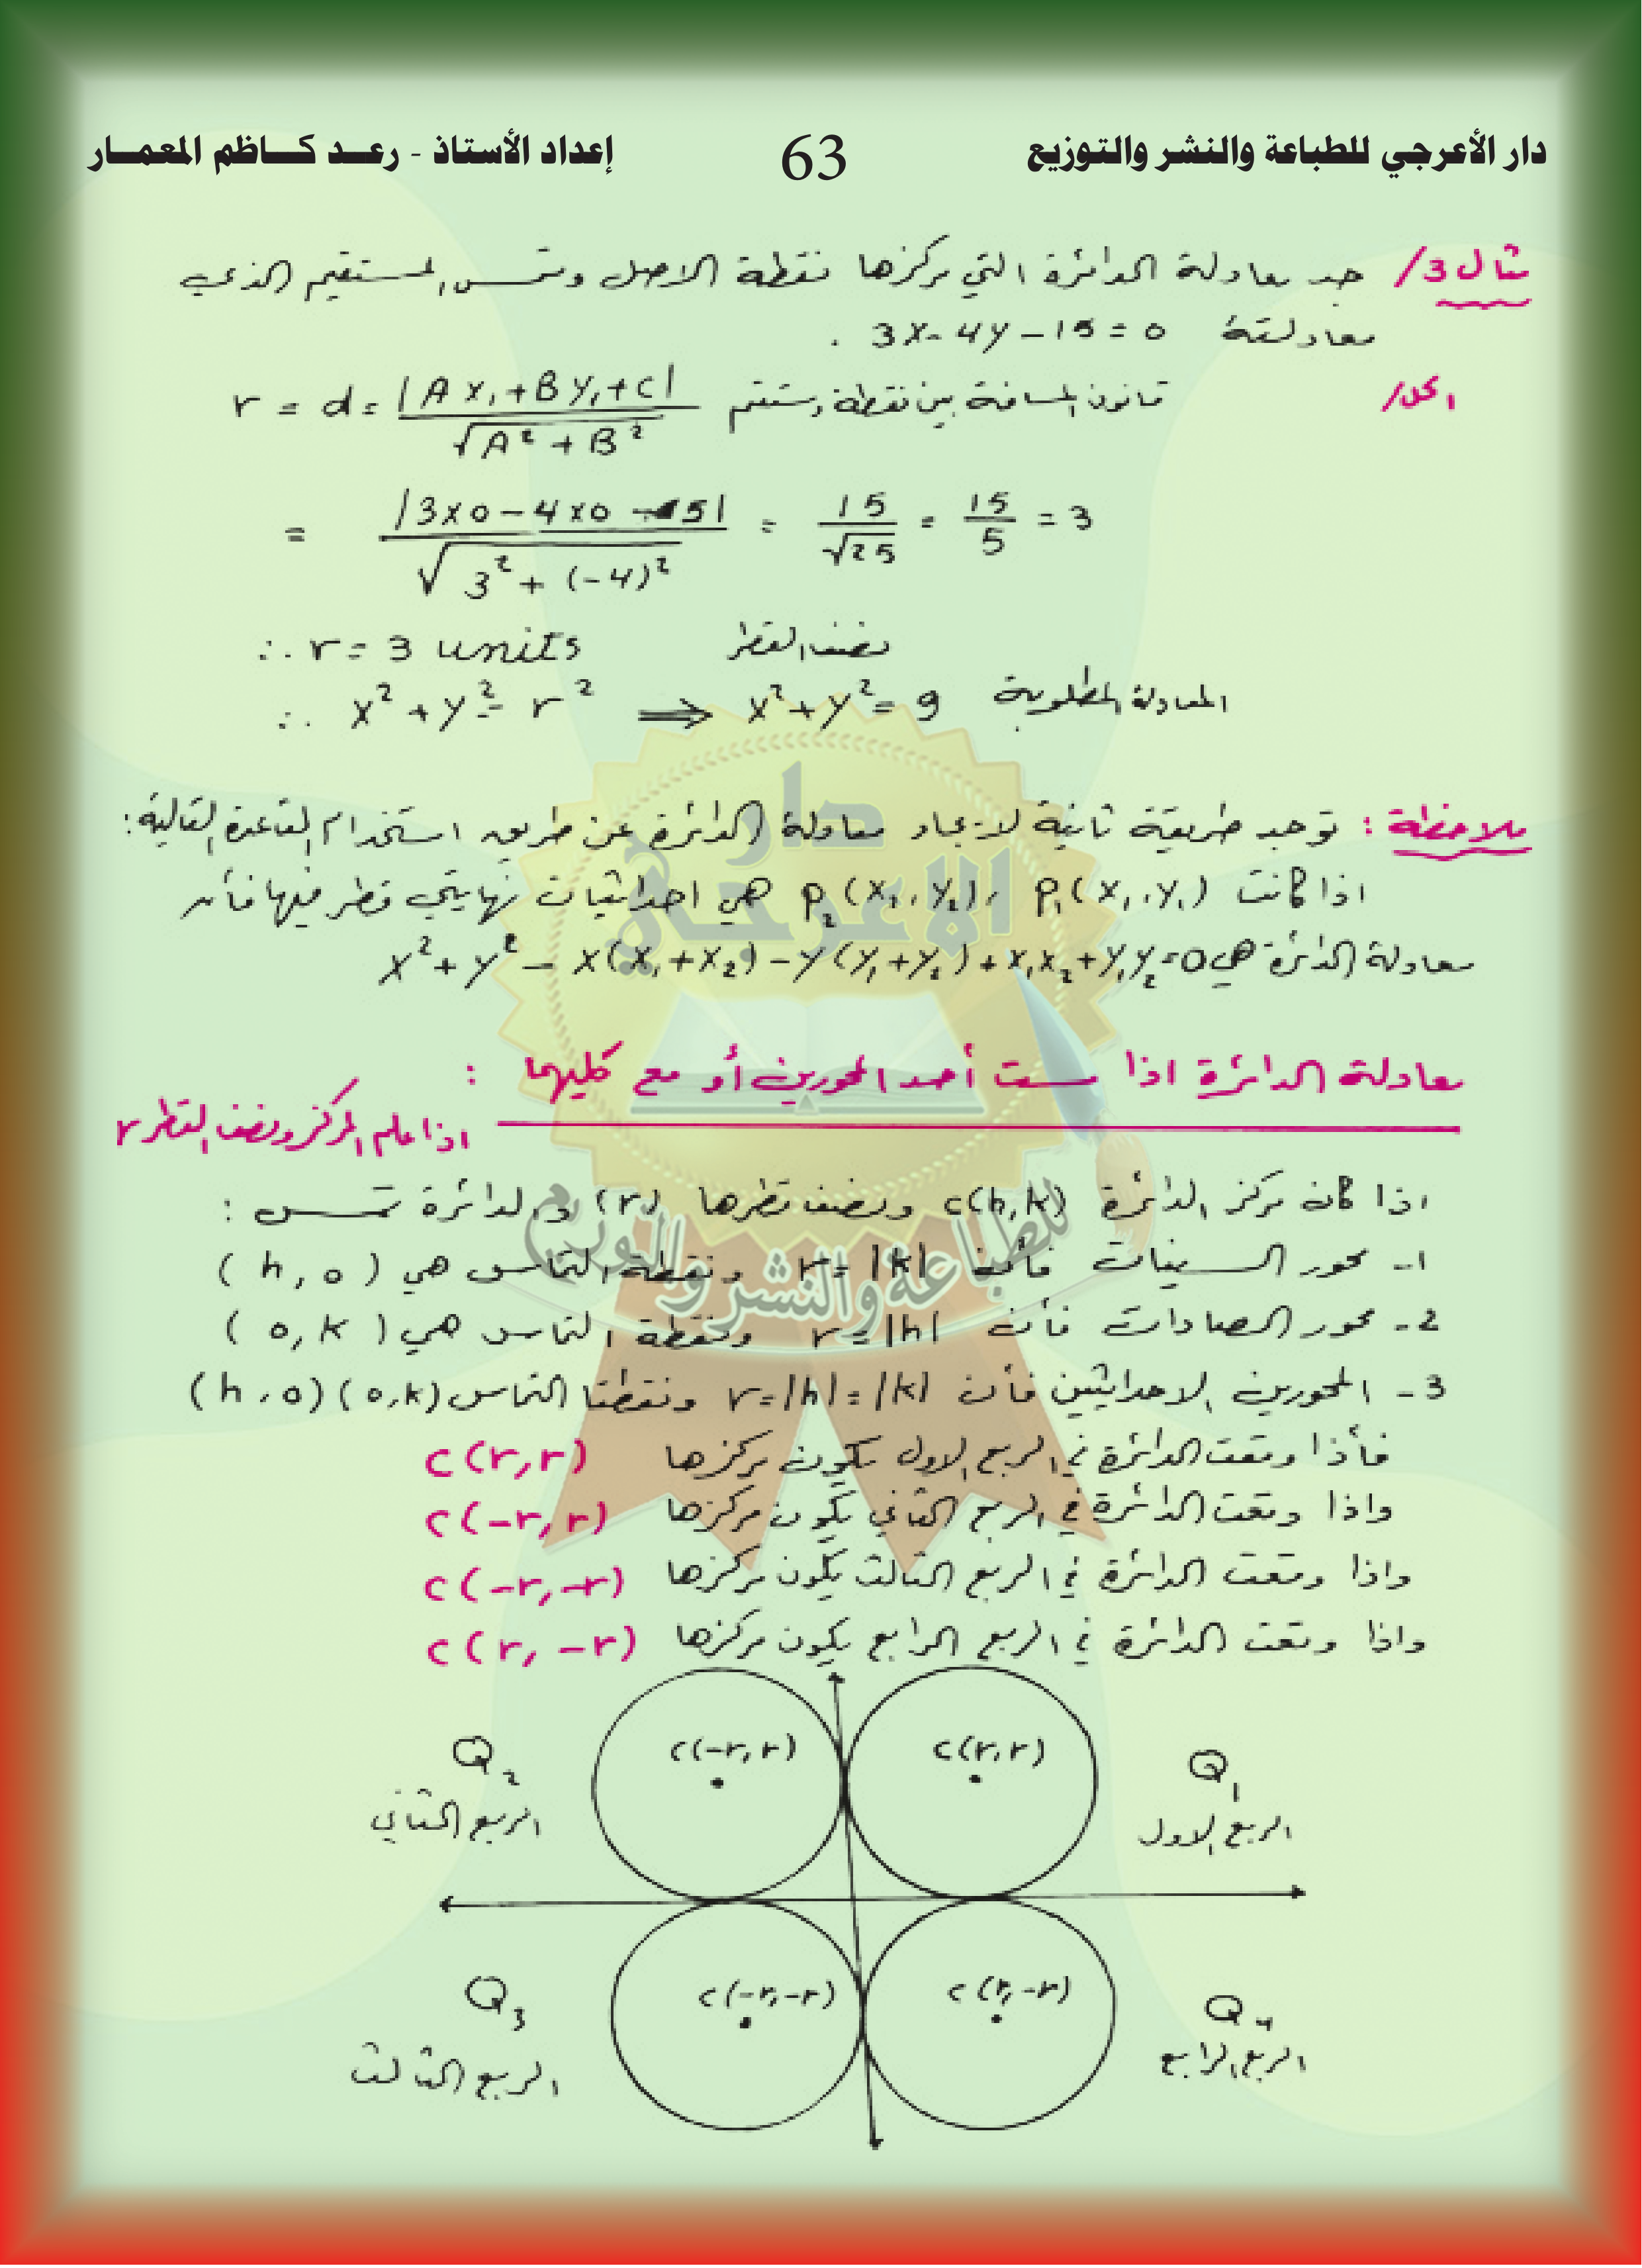 دار الأعرجي للطباعة والنشر والتوزيع 63 إعداد الأستاذ - رعد كاظم المعمار
مثال 3/ جد معادلة الدائرة التي مركزها نقطة الاصل وتمس المستقيم الذي
معادلتة 3x - 4y - 15 = 0 .
الحل/ قانون المسافة بين نقطة ومستقيم r = d = |Ax₁ + By₁ + c| / √(A² + B²)
= |3×0 - 4×0 - 15| / √(3² + (-4)²) = 15/√25 = 15/5 = 3
∴ r = 3 units نصف القطر
∴ x² + y² = r² ⟹ x² + y² = 9 المعادلة المطلوبة
ملاحظة : توجد طريقة ثانية لايجاد معادلة الدائرة عن طريق استخدام القاعدة التالية :
اذا كانت P₁(x₁, y₁) , P₂(x₂, y₂) هي احداثيات نهايتي قطر فيها فأن
معادلة الدائرة هي x² + y² - x(x₁ + x₂) - y(y₁ + y₂) + x₁x₂ + y₁y₂ = 0
معادلة الدائرة اذا مست أحد المحورين أو مع كليهما :
اذا علم المركز ونصف القطر r
اذا كان مركز الدائرة c(h,k) ونصف قطرها (r) والدائرة تمس :
1- محور السينات فأن r = |k| ونقطة التماس هي (h, 0)
2- محور الصادات فأن r = |h| ونقطة التماس هي (0, k)
3- المحورين الاحداثيين فأن r = |h| = |k| ونقطتا التماس (0, k) (h, 0)
فأذا وقعت الدائرة في الربع الاول يكون مركزها c(r, r)
واذا وقعت الدائرة في الربع الثاني يكون مركزها c(-r, r)
واذا وقعت الدائرة في الربع الثالث يكون مركزها c(-r, -r)
واذا وقعت الدائرة في الربع الرابع يكون مركزها c(r, -r)
Q₁ c(r, r) c(-r, r) Q₂
الربع الاول الربع الثاني
Q₄ c(r, -r) c(-r, -r) Q₃
الربع الرابع الربع الثالث
دار
الاعرجي
للطباعة والنشر والتوزيع